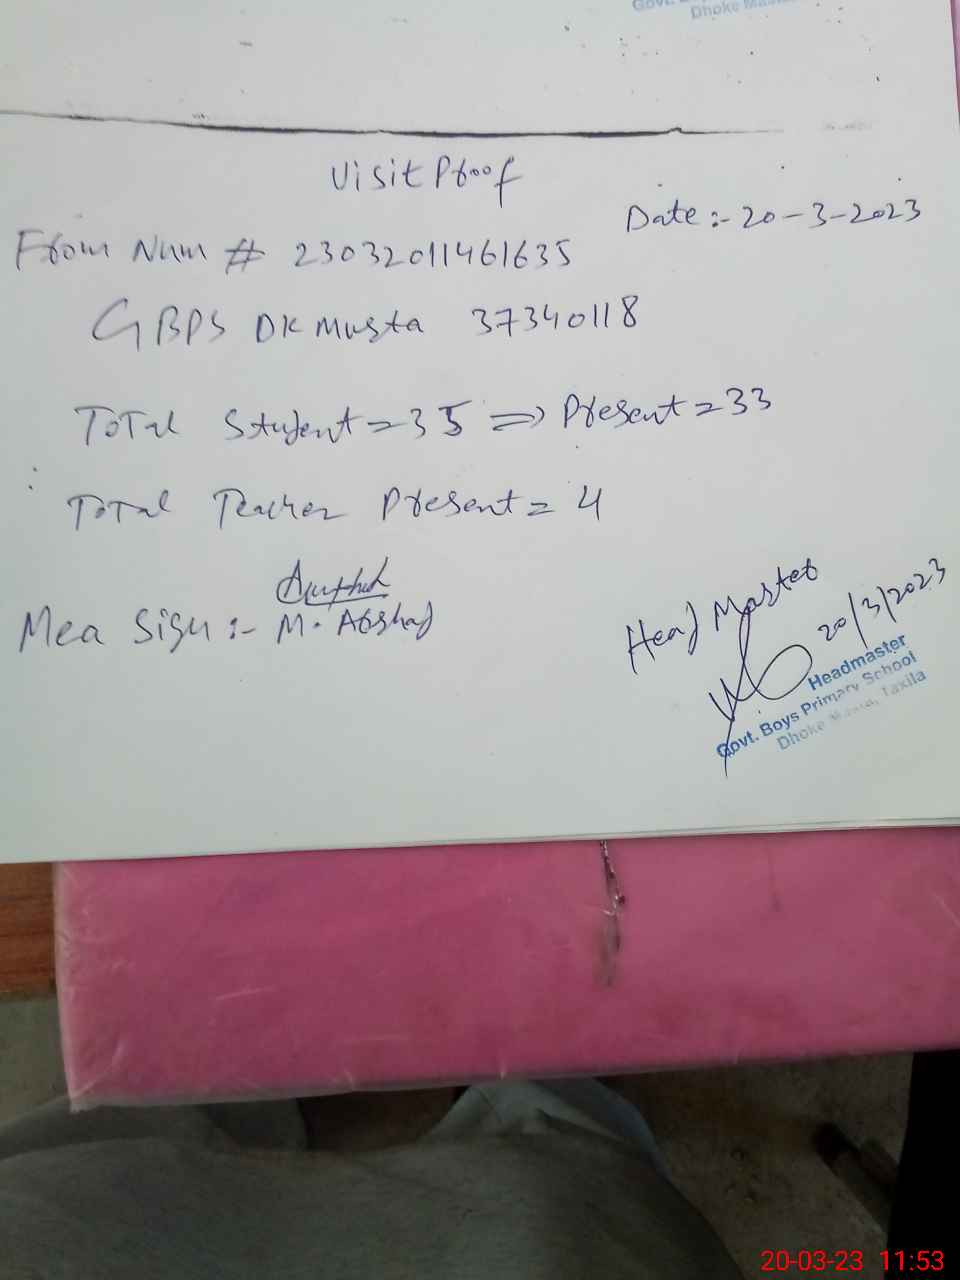 Govt.
Dhoke
Visit Proof
Date :- 20-3-2023
From Num # 23032011461635
GBPS DK Musta 37340118
Total Student = 35 => Present = 33
Total Teacher Present = 4
Mea Sign :- M. Arshad
Head Master
20/3/2023
Headmaster
Govt. Boys Primary School
Dhoke Taxila
20-03-23 11:53